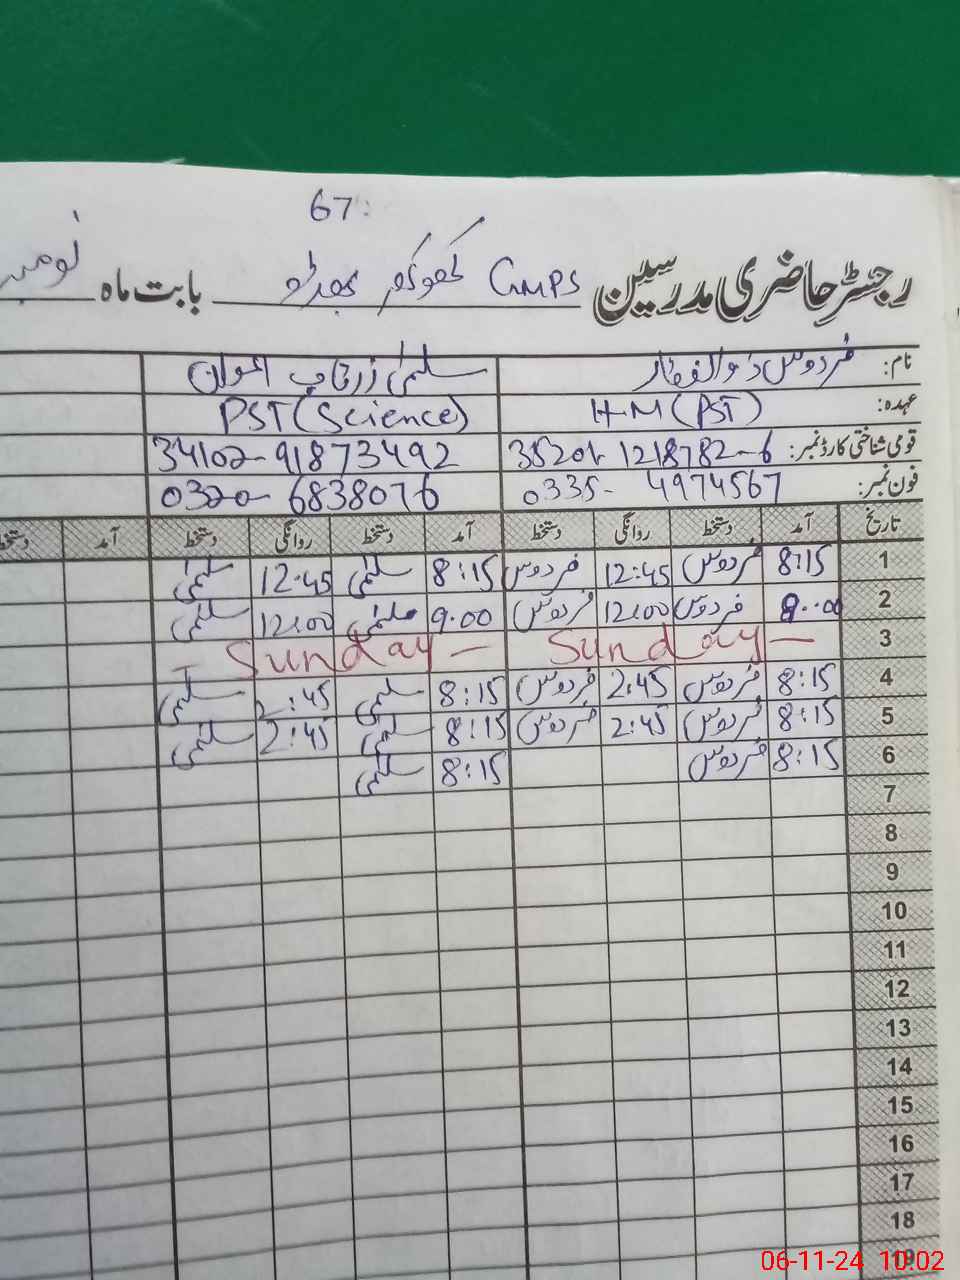 67
رجسٹر حاضری مدرسین GMPS کھوکھر بابت ماہ نومبر
نام: فردوس ذوالفقار سلمیٰ زرتاب اعوان
عہدہ: H.M (PST) PST (Science)
قومی شناختی کارڈ نمبر: 35201-1218782-6 34102-91873492
فون نمبر: 0335-4974567 0320-6838076
تاریخ آمد دستخط روانگی دستخط آمد دستخط روانگی دستخط آمد دستخط
1 8:15 فردوس 12:45 فردوس 8:15 سلمیٰ 12:45 سلمیٰ
2 9:00 فردوس 12:00 فردوس 9:00 سلمیٰ 12:00 سلمیٰ
3 Sunday – – Sunday –
4 8:15 فردوس 2:45 فردوس 8:15 سلمیٰ 2:45 سلمیٰ
5 8:15 فردوس 2:45 فردوس 8:15 سلمیٰ 2:45 سلمیٰ
6 8:15 فردوس 8:15 سلمیٰ
7
8
9
10
11
12
13
14
15
16
17
18
19
06-11-24 10:02